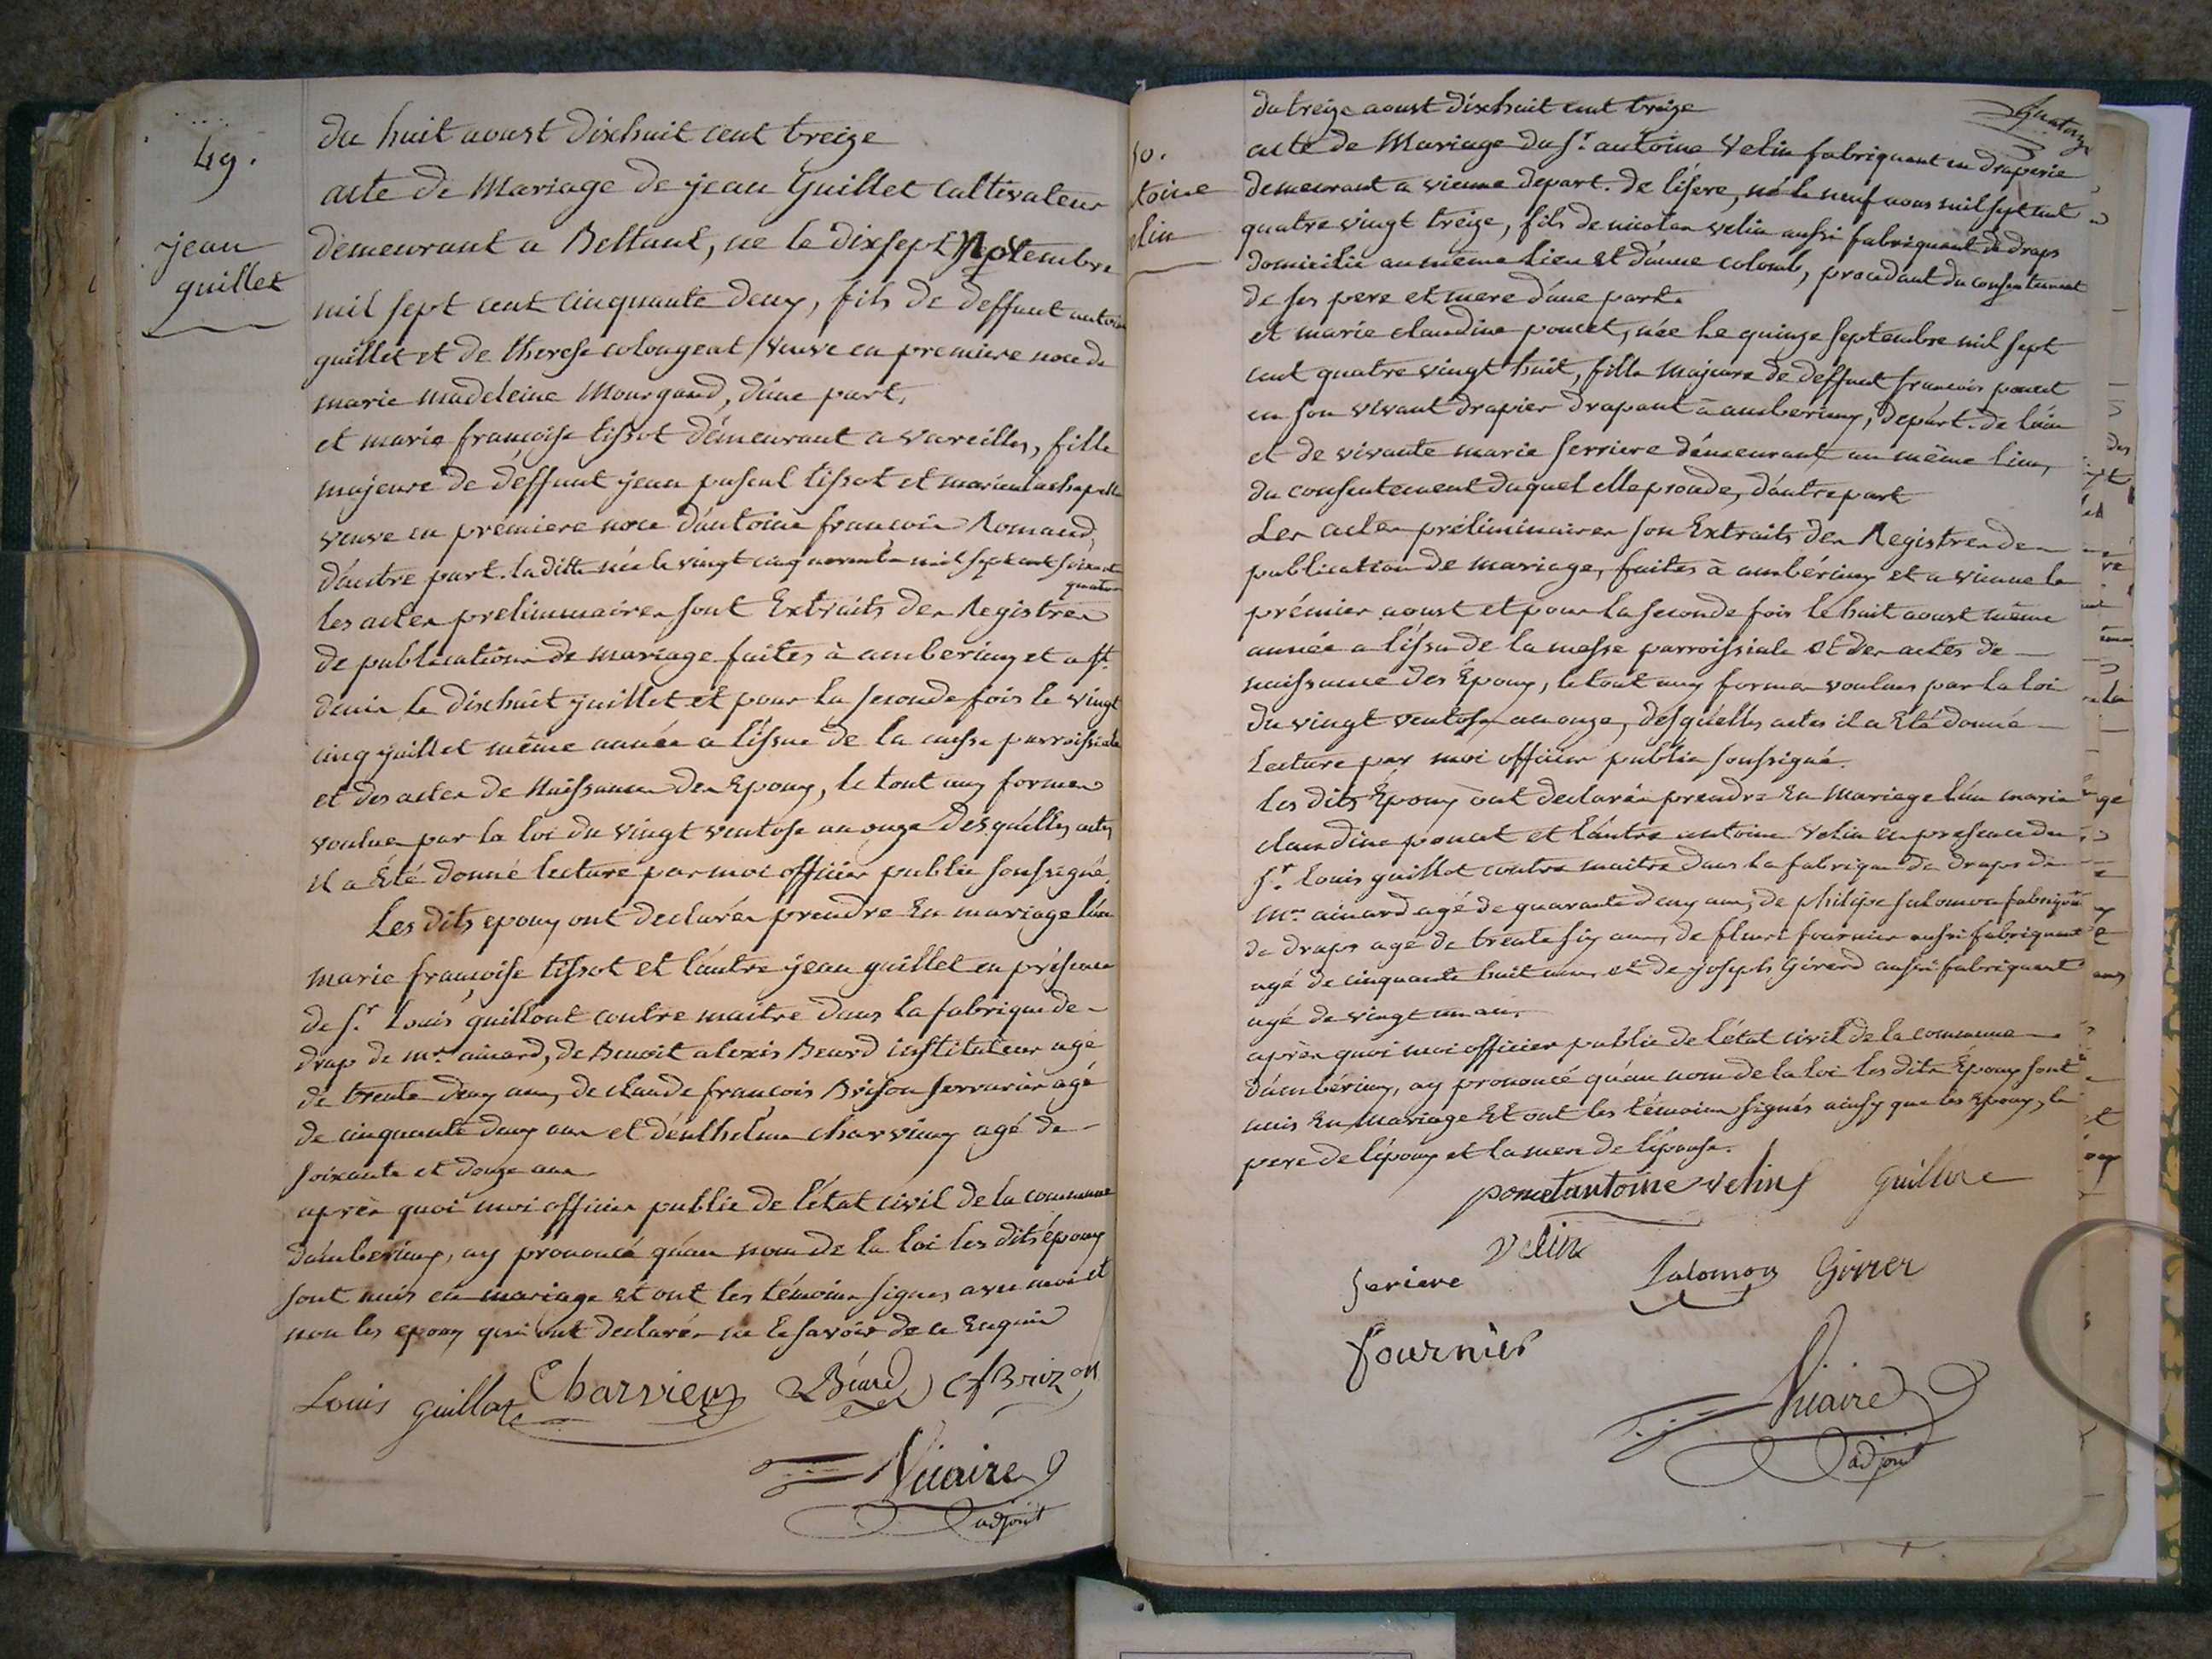 49.
jean
guillet
du huit aoust dixhuit cent treize
acte de Mariage de jean Guillet Cultivateur
demeurant a Bettant, né le dixsept
mil sept cent cinquante deux, fils de deffunt antoine
guillet et de therese colongeat veuve en premiere noce de
marie madeleine Mourgaud, d'une part,
et marie françoise tissot démeurant a vareilles, fille
majeure de déffunt jean pascal tissot et
veuve en prémiere noce d'antoine francois Romand,
d'autre part. la ditte née le vingt cinq novembre mil sept cent soixante
quatorze
les actes preliminaires sont Extraits des Registres
de publications de mariage faites à amberieux et a st.
denis le dixhuit juillet et pour la seconde fois le vingt
cinq juillet même année a l'issue de la messe parroissiale
et des actes de Naissances des Epoux, le tout aux formes
voulues par la loi du vingt ventose an onze desquelles actes
il a Eté donné lecture par moi officier public soussigné.
Les dits epoux ont declarés prendre En mariage l'un
marie françoise tissot et l'autre jean guillet en présence
de sr. Louis guillout contre maitre dans la fabrique de
drap de mr. ainard, de Benoit alexis Beard instituteur agé
de trente deux ans, de claude françois Brison serrurier agé
de cinquante deux ans et d'enthelme charvieux agé de
soixante et douze ans
après quoi moi officier public de l'état civil de la commune
d'amberieux, ay prononcé qu'au nom de la loi les dits époux
sont unis en mariage et ont les témoins signés avec moi et
non les epoux qui ont declarés ne le savoir de ce Enquis
Louis guillot Charvieux Béard cf Brizon
Vicaire
adjoint
50.
toine
elin
quatorze
du treize aoust dixhuit cent treize
acte de Mariage du sr. antoine Velin fabriquant en draperie
demeurant a vienne depart. de l'isere, né le neuf mil sept cent
quatre vingt treize, fils de nicolas velin aussi fabriquant de draps
domicilié au même lieu et d'anne colomb, procedant du consentement
de ses pere et mere d'une part.
et marie claudine poncet, née le quinze septembre mil sept
cent quatre vingt huit, fille majeure de deffunt francois poncet
en son vivant drapier drapant à amberieux, depart. de l'ain
et de vivante marie serriere démeurant au même lieu,
du consentement duquel elle procede, d'autre part
Les actes préliminaires son Extraits des Registres de
publication de mariage, faites à ambérieux et a vienne le
prémier aoust et pour la seconde fois le huit aoust même
année a l'issue de la messe parroissiale et des actes de
naissance des Epoux, le tout aux formes voulues par la loi
du vingt ventose an onze, desquelles actes il a Eté donné
Lecture par moi officier public soussigné.
les dits Epoux ont declarés prendre En Mariage l'un marie
claudine poncet et l'autre antoine velin en presence du
sr. louis guillot contre maitre dans la fabrique de draps de
mr. ainard agé de quarante deux ans, de philipe salomon fabriquant
de draps agé de trente six ans, de fleuri fournier aussi fabriquant
agé de cinquante huit ans et de joseph Girerd aussi fabriquant
agé de vingt un an.
après quoi moi officier public de l'état civil de la commune
d'ambérieux, ay prononcé qu'au nom de la loi les dits Epoux sont
unis En Mariage Et ont les témoins signés ainsy que les Epoux, le
pere de l'époux et la mere de l'épouse.
poncet antoine velin guillot
velin
seriere Salomon Girrer
fournier
Vicaire
adjoint